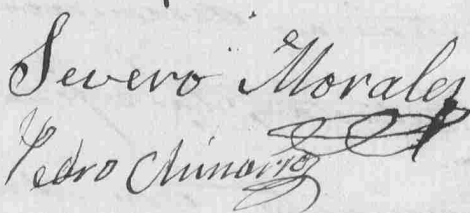 Severo Morales
Pedro Chinarro